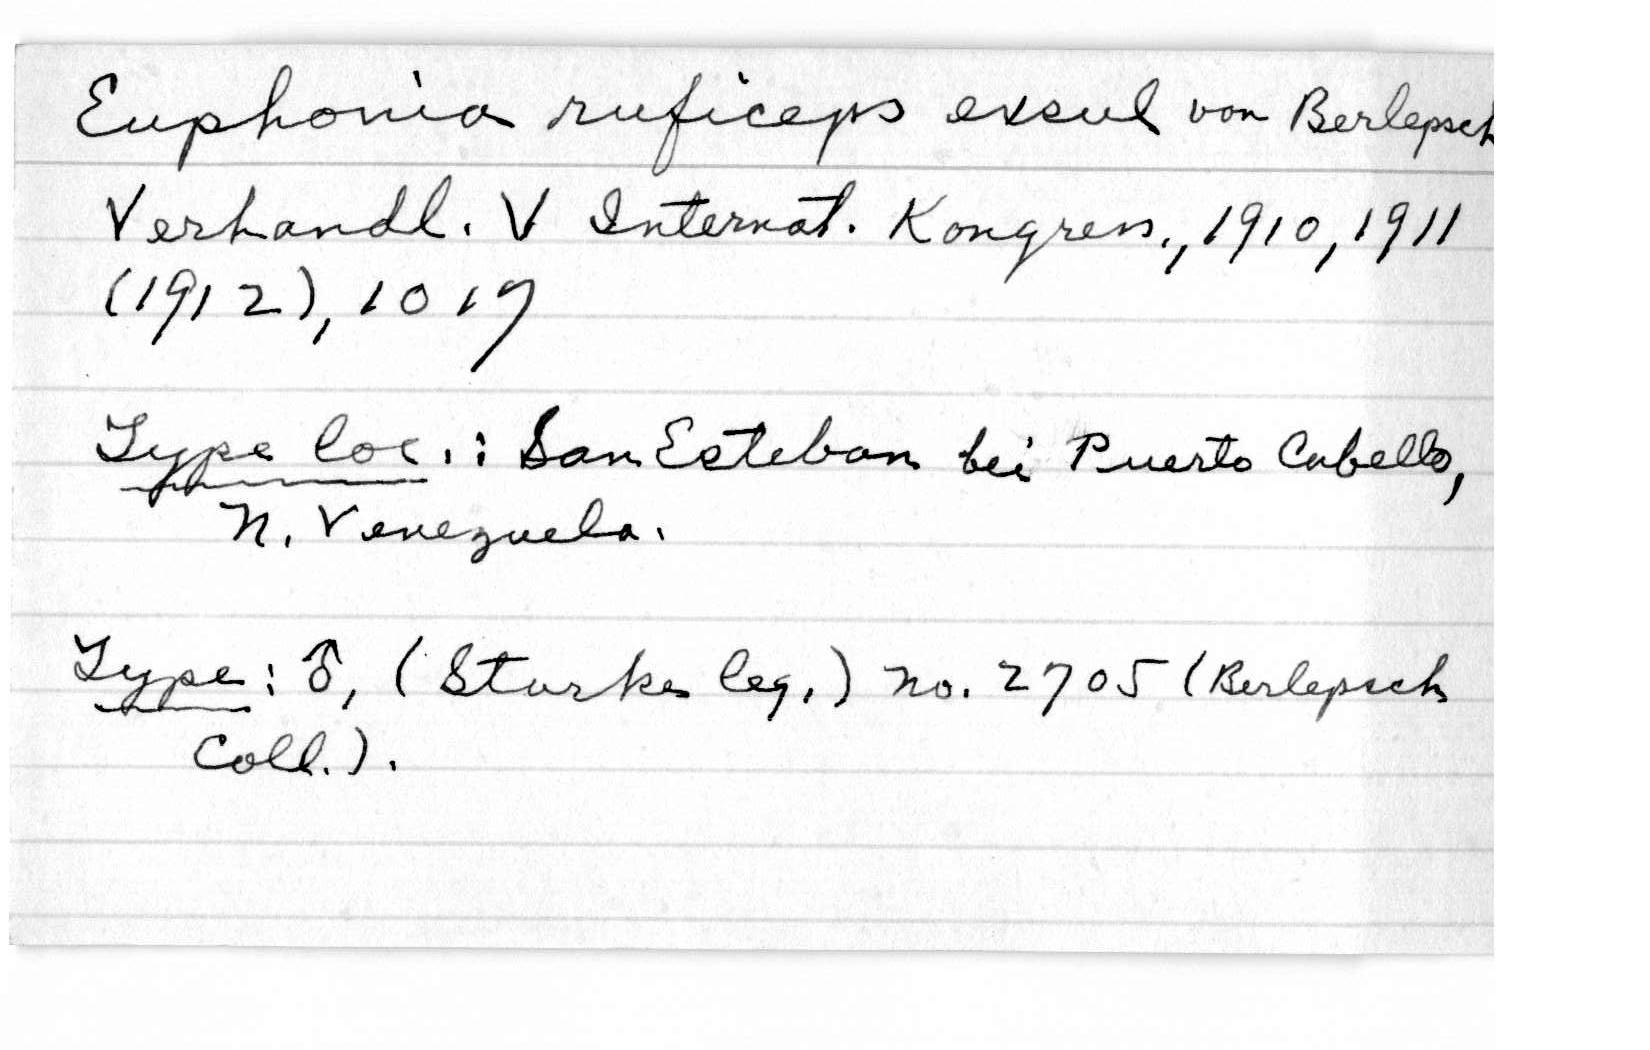 Euphonia ruficeps exsul von Berlepsch
Verhandl. V Internat. Kongress., 1910, 1911
(1912), 1017
Type loc.: San Esteban bei Puerto Cabello,
N. Venezuela.
Type: ♂, (Starke leg.) no. 2705 (Berlepsch
Coll.).